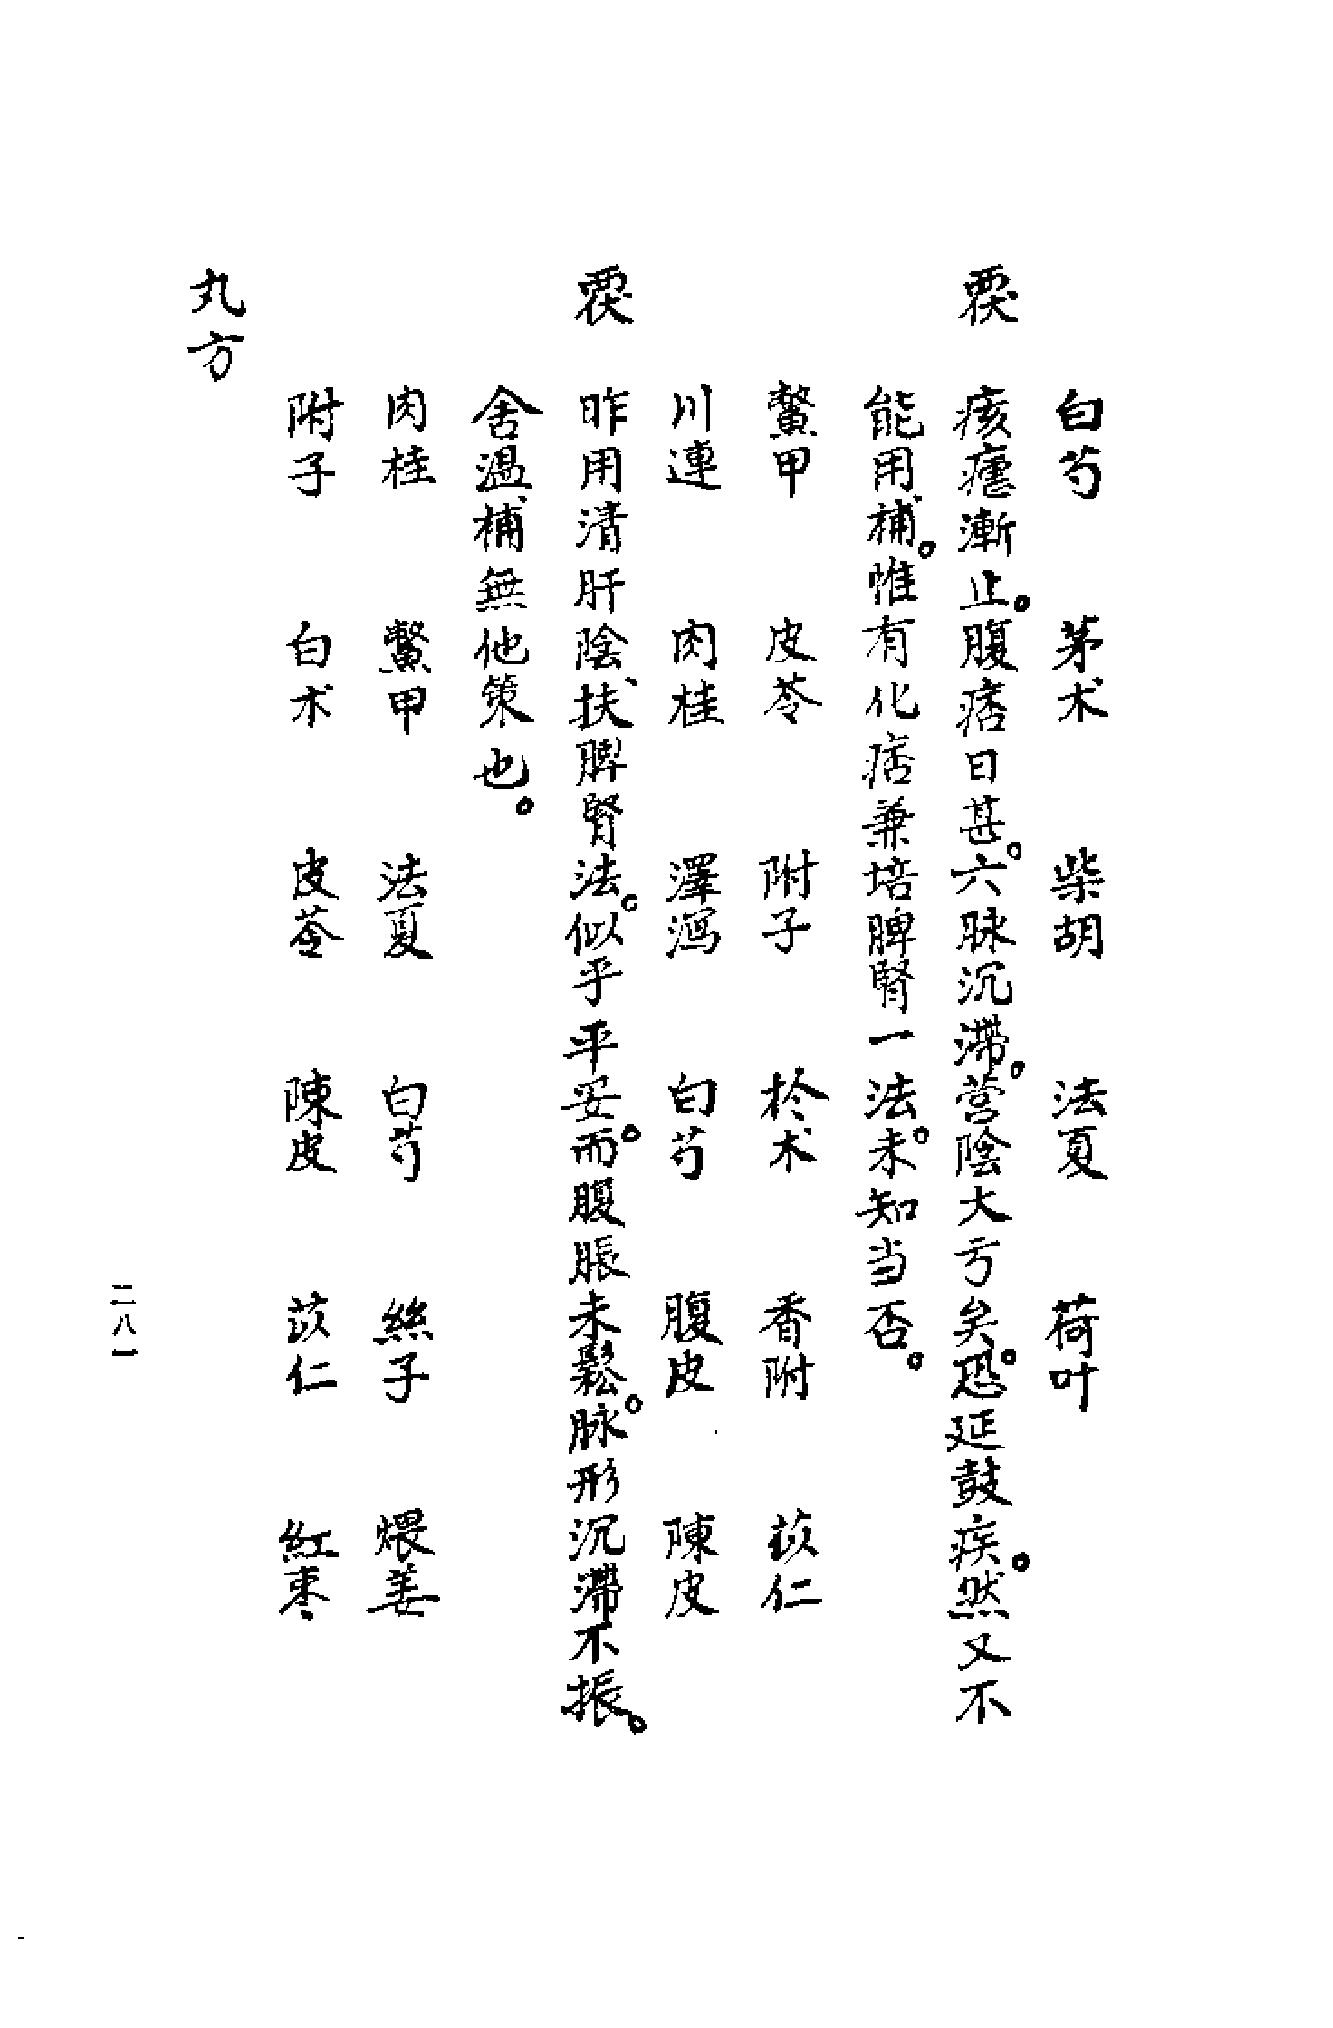 白芍 茅术 柴胡 法夏 荷叶
痎瘧漸止。腹痞日甚。六脉沉滯。营陰大亏矣。恐延鼓疾。然又不
能用補。惟有化痞兼培脾腎一法。未知当否。
鱉甲 皮苓 附子 於术 香附 苡仁
川連 肉桂 澤瀉 白芍 腹皮 陳皮
昨用清肝陰、扶脾腎法。似乎平妥。而腹脹未鬆。脉形沉滯不振。
舍溫補無他策也。
肉桂 鱉甲 法夏 白芍 絲子 煨姜
附子 白术 皮苓 陳皮 苡仁 紅棗
丸方
二八一